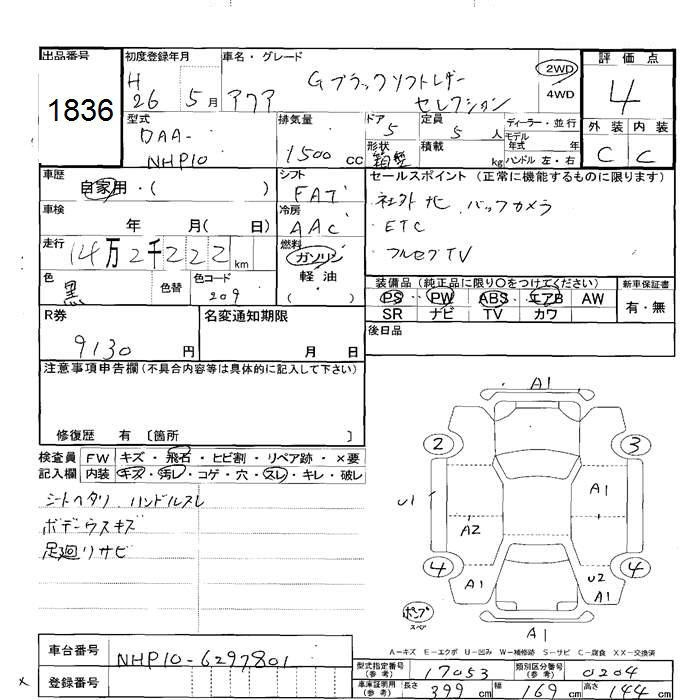 出品番号 1836
初度登録年月 H 26 5月
車名・グレード アクア Gブラックソフトレザーセレクション
2WD
4WD
評価点 4
外装 C 内装 C
型式 DAA-NHP10
排気量 1500 CC
ドア 5
形状 箱型
定員 5 人
積載 kg
ディーラー・並行
モデル年式 年
ハンドル 左・右
車歴 自家用・( )
シフト FAT
セールスポイント (正常に機能するものに限ります)
・社外ナビ、バックカメラ
・ETC
・フルセグTV
車検 年 月( 日)
冷房 AAC
走行 14万2千222km
燃料 ガソリン 軽油 ( )
色 黒 色替
色コード 209
装備品 (純正品に限り○をつけてください)
PS PW ABS エアB AW
SR ナビ TV カワ
新車保証書 有・無
R券 9130 円
名変通知期限 月 日
後日品
注意事項申告欄(不具合内容等は具体的に記入して下さい)
修復歴 有 〔箇所 〕
検査員記入欄
FW キズ・飛石・ヒビ割・リペア跡・×要
内装 キズ・汚レ・コゲ・穴・スレ・キレ・破レ
シートヘタリ ハンドルスレ
ボデーウスキズ
足廻リサビ
A1
2 3
U1 A1
A2
4 4
A1 U2 A1
ポンプ スペア
A1
A-キズ E-エクボ U-凹み W-補修跡 S-サビ C-腐食 XX-交換済
車台番号 NHP10-6297801
型式指定番号(参考) 17053
類別区分番号(参考) 0204
× 登録番号
車庫証明用(参考) 長さ 399 cm 幅 169 cm 高さ 144 cm